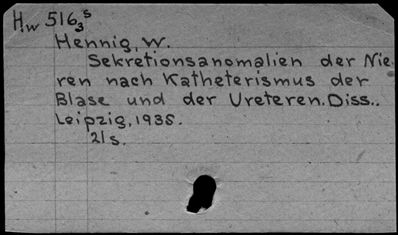 H.w 516₃ˢ
Hennig, W.
Sekretionsanomalien der Nie
ren nach Katheterismus der
Blase und der Ureteren. Diss..
Leipzig, 1935.
21 s.